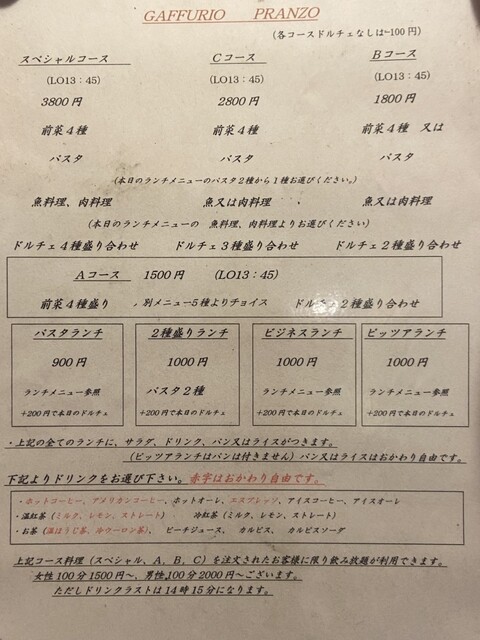 GAFFURIO PRANZO
(各コースドルチェなしは－100円)
スペシャルコース Cコース Bコース
(LO13:45) (LO13:45) (LO13:45)
3800円 2800円 1800円
前菜4種 前菜4種 前菜4種 又は
パスタ パスタ パスタ
(本日のランチメニューのパスタ2種から1種お選びください。)
魚料理、肉料理 魚又は肉料理 魚又は肉料理
(本日のランチメニューの 魚料理、肉料理よりお選びください)
ドルチェ4種盛り合わせ ドルチェ3種盛り合わせ ドルチェ2種盛り合わせ
Aコース 1500円 (LO13:45)
前菜4種盛り 別メニュー5種よりチョイス ドルチェ2種盛り合わせ
パスタランチ 2種盛りランチ ビジネスランチ ピッツアランチ
900円 1000円 1000円 1000円
ランチメニュー参照 パスタ2種 ランチメニュー参照 ランチメニュー参照
+200円で本日のドルチェ +200円で本日のドルチェ +200円で本日のドルチェ +200円で本日のドルチェ
・上記の全てのランチに、サラダ、ドリンク、パン又はライスがつきます。
(ピッツアランチはパンは付きません) パン又はライスはおかわり自由です。
下記よりドリンクをお選び下さい。赤字はおかわり自由です。
・ホットコーヒー、アメリカンコーヒー、ホットオーレ、エスプレッソ、アイスコーヒー、アイスオーレ
・温紅茶(ミルク、レモン、ストレート) 冷紅茶(ミルク、レモン、ストレート)
・お茶(温ほうじ茶、冷ウーロン茶)、 ピーチジュース、 カルピス、 カルピスソーダ
上記コース料理(スペシャル、A、B、C)を注文されたお客様に限り飲み放題が利用できます。
女性100分1500円～、男性100分2000円～ございます。
ただしドリンクラストは14時15分になります。